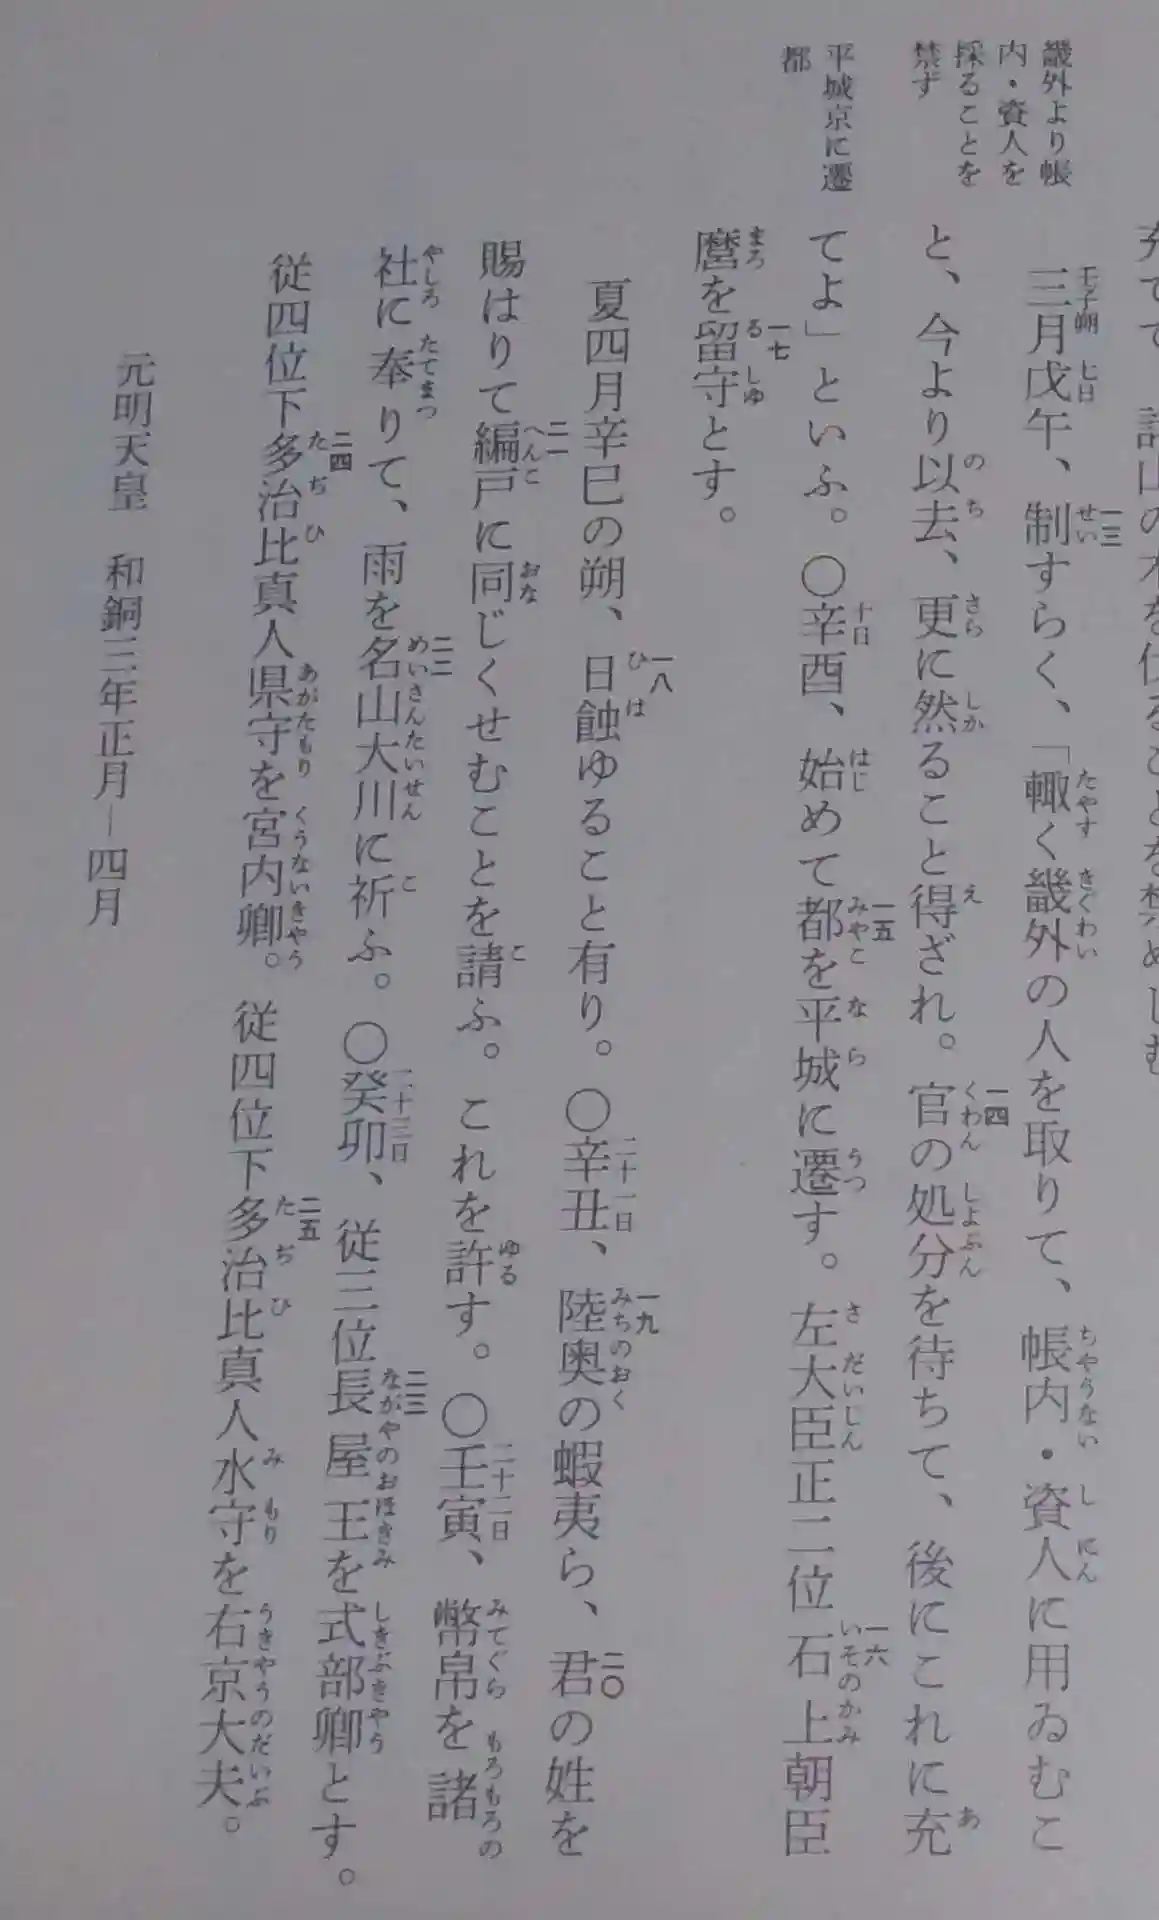 畿外より帳
内・資人を
採ることを
禁ず
平城京に遷
都
三月戊午、制すらく、「輙く畿外の人を取りて、帳内・資人に用ゐむこ
と、今より以去、更に然ること得ざれ。官の処分を待ちて、後にこれに充
てよ」といふ。○辛酉、始めて都を平城に遷す。左大臣正二位石上朝臣
麿を留守とす。
夏四月辛巳の朔、日蝕ゆること有り。○辛丑、陸奥の蝦夷ら、君の姓を
賜はりて編戸に同じくせむことを請ふ。これを許す。○壬寅、幣帛を諸
社に奉りて、雨を名山大川に祈ふ。○癸卯、従三位長屋王を式部卿とす。
従四位下多治比真人県守を宮内卿。従四位下多治比真人水守を右京大夫。
元明天皇 和銅三年正月―四月